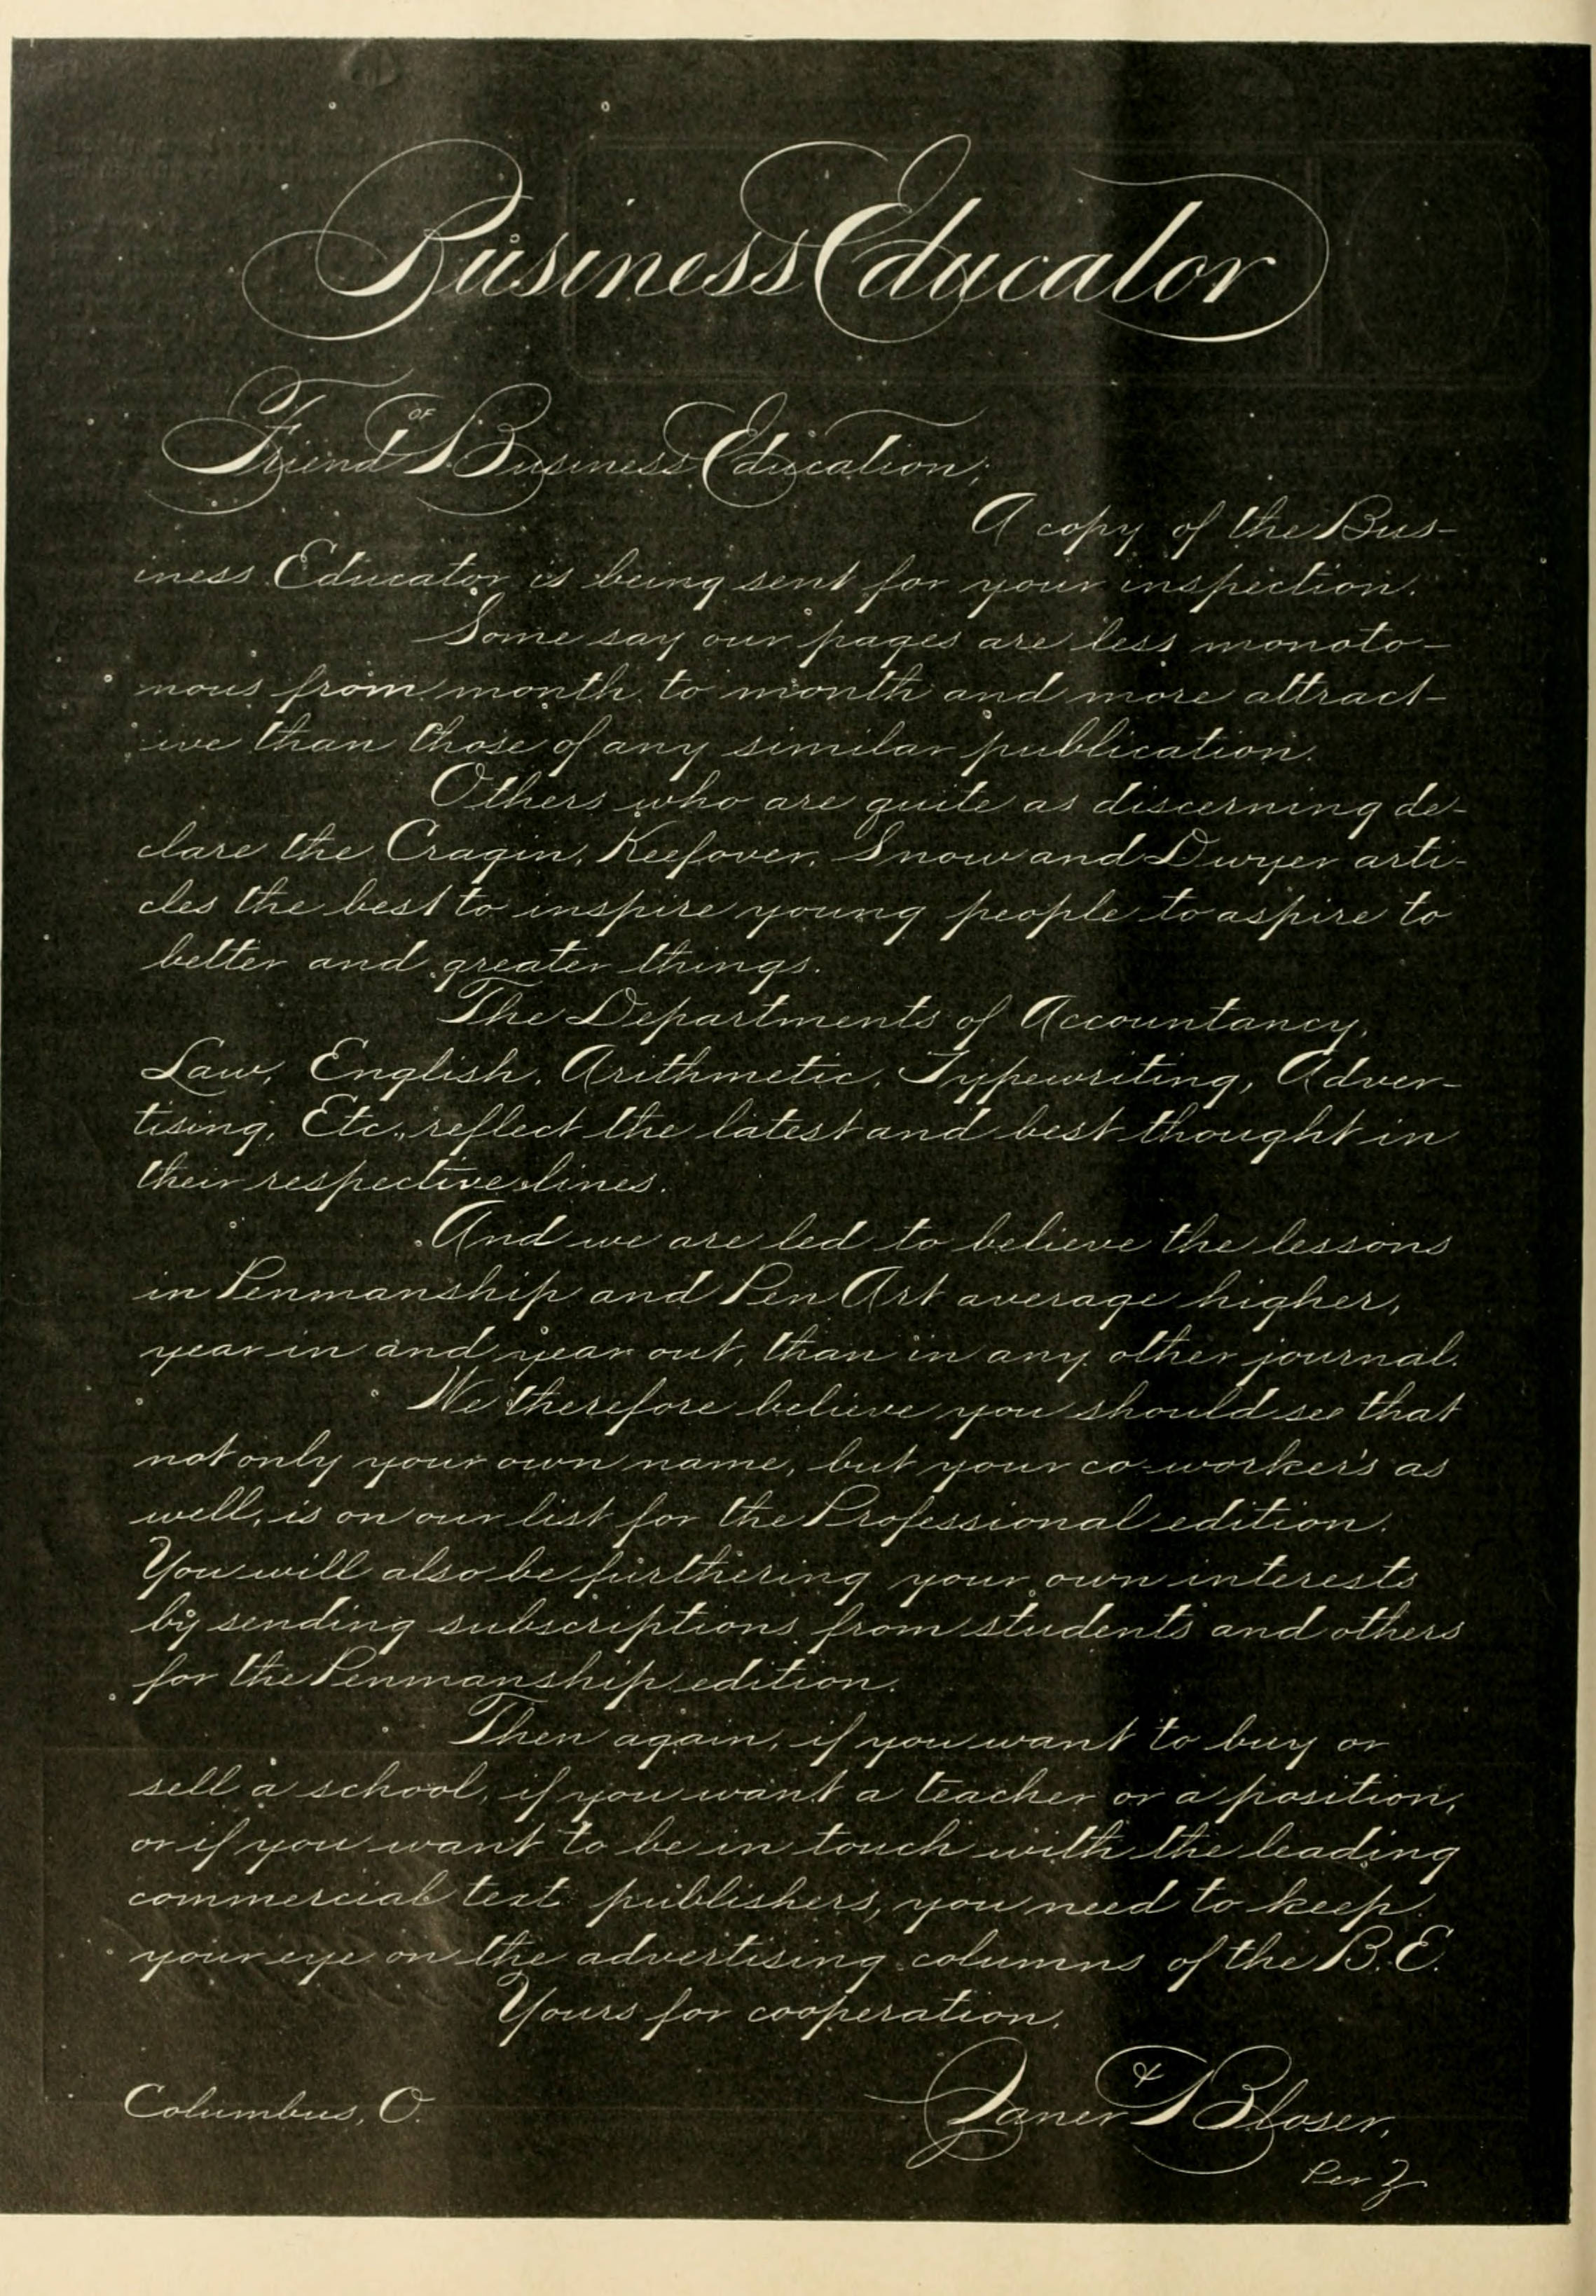 Business Educator
Friend of Business Education;
A copy of the Bus-
iness Educator is being sent for your inspection.
Some say our pages are less monoto-
nous from month to month and more attract-
ive than those of any similar publication.
Others who are quite as discerning de-
clare the Cragin, Keefover, Snow and Dwyer arti-
cles the best to inspire young people to aspire to
better and greater things.
The Departments of Accountancy,
Law, English, Arithmetic, Typewriting, Adver-
tising, Etc., reflect the latest and best thought in
their respective lines.
And we are led to believe the lessons
in Penmanship and Pen Art average higher,
year in and year out, than in any other journal.
We therefore believe you should see that
not only your own name, but your co-worker's as
well, is on our list for the Professional edition.
You will also be furthering your own interests
by sending subscriptions from students and others
for the Penmanship edition.
Then again, if you want to buy or
sell a school, if you want a teacher or a position,
or if you want to be in touch with the leading
commercial text publishers, you need to keep
your eye on the advertising columns of the B.E.
Yours for cooperation,
Columbus, O. Zaner & Bloser,
Per Z